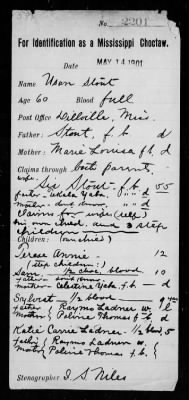 No. 2201
For Identification as a Mississippi Choctaw.
Date MAY 14 1901
Name Uson Stout
Age 60 Blood full
Post Office Dillville, Miss.
Father: Stout, f. b. d
Mother: Marie Louisa f b d
Claims through both parents,
wife,
Sis Stout - f. b. 55
father d
mother d
Claims for wife (self)
his own child, and 3 step
children
Children:
Terese Annie 12
(step children:)
Sam 1/2 choc blood 10
father
mother - Celestine Yaba, f. b. - d
Sylvest 1/2 blood - 9 yrs
father } Raymo Ladner w. l
mother } Pelirie Thomas f b d
Katie Carrie Ladner - 1/2 blood, 5
father } Raymo Ladner w.
mother } Pelirie Thomas f. b.
Stenographer I. S. Niles